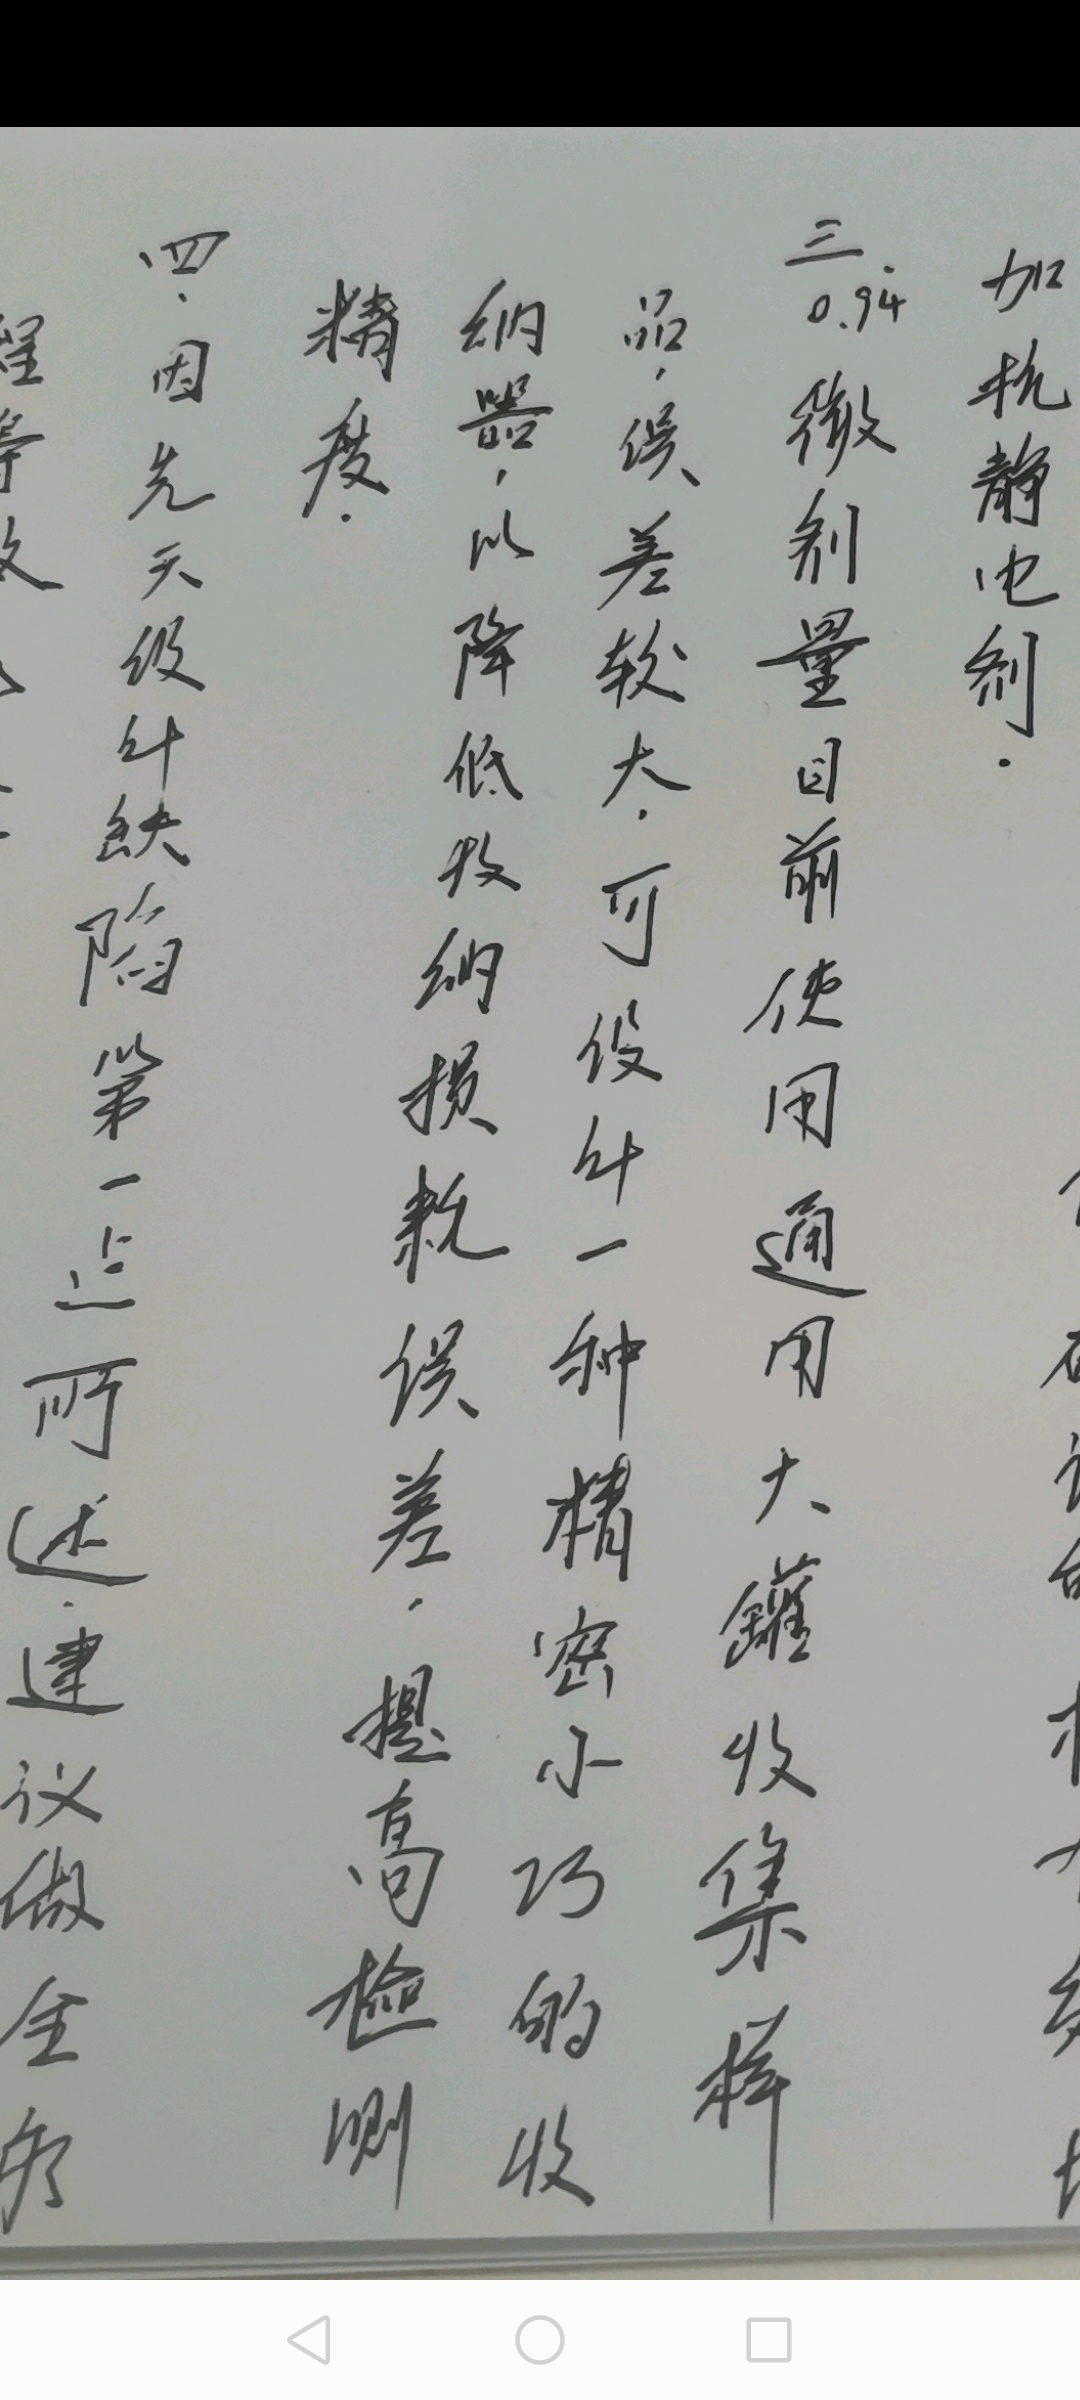 加抗静电剂.
三、0.94微剂量目前使用通用大罐收集样
品,误差较大.可设计一种精密小巧的收
纳器,以降低收纳损耗误差,提高检测
精度.
四、因先天设计缺陷第一点所述.建议做全